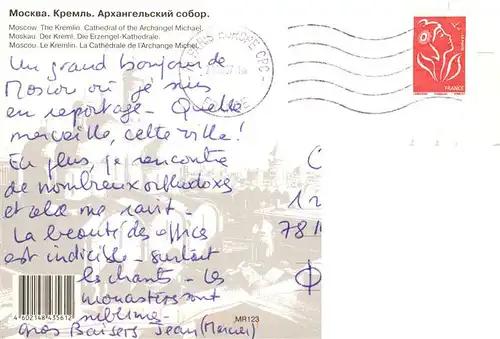 Москва. Кремль. Архангельский собор.
Moscow. The Kremlin. Cathedral of the Archangel Michael.
Moskau. Der Kreml. Die Erzengel-Kathedrale.
Moscou. Le Kremlin. La Cathédrale de l'Archange Michel.
Un grand bonjour de
Moscou où je suis
en reportage - Quelle
merveille, cette ville !
En plus, je rencontre
de nombreux orthodoxes
et cela me ravit -
La beauté des offices
est indicible - surtout
les chants - Les
monastères sont
sublimes -
Gros Baisers Jean (Mercier)
4 602148 435612
MR123
EUROPE CPC
FRANCE
C
1 r
78